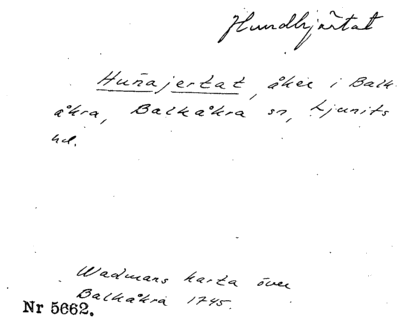 Hundhjärtat
Huñajertat, åker i Balk-
åkra, Balkåkra sn, Ljunits
hd.
Wadmans karta över
Balkåkra 1745.
Nr 5662.